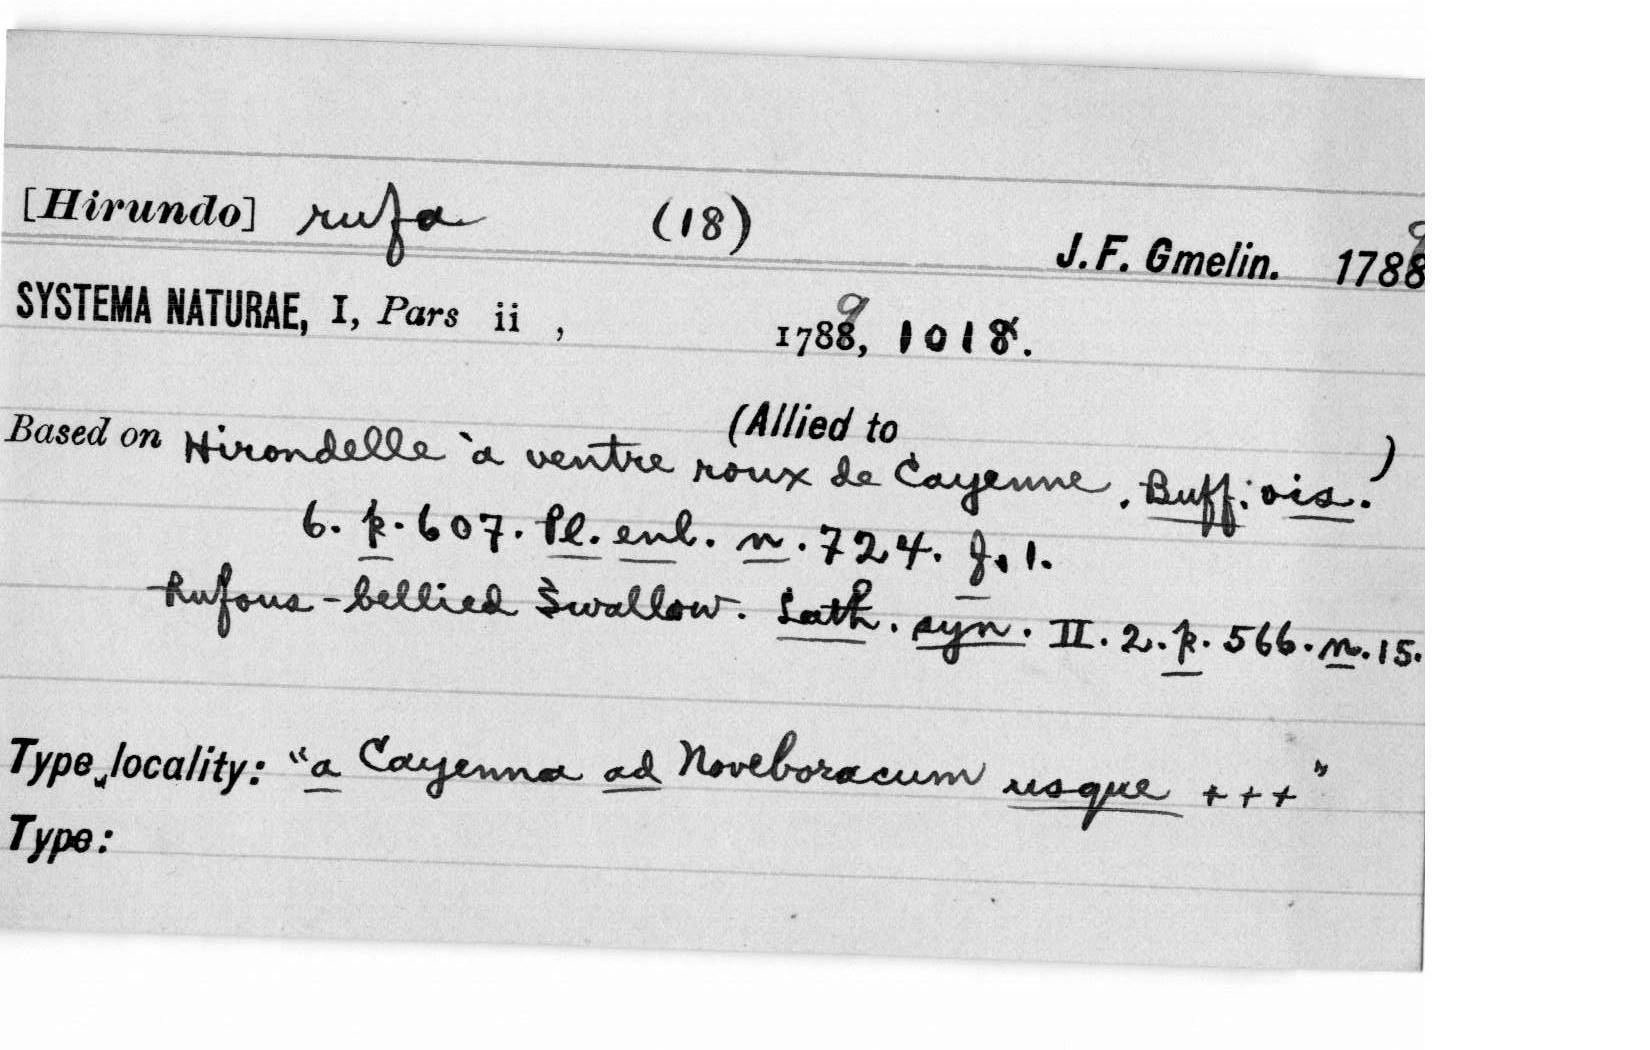 [Hirundo] rufa (18) J. F. Gmelin. 1788 9
SYSTEMA NATURAE, I, Pars ii , 1788 9, 1018.
(Allied to )
Based on Hirondelle à ventre roux de Cayenne. Buff. ois.
6. p. 607. Pl. enl. n. 724. f. 1.
Rufous-bellied Swallow. Lath. syn. II. 2. p. 566. n. 15.
Type locality: "a Cayenna ad Noveboracum usque +++"
Type: